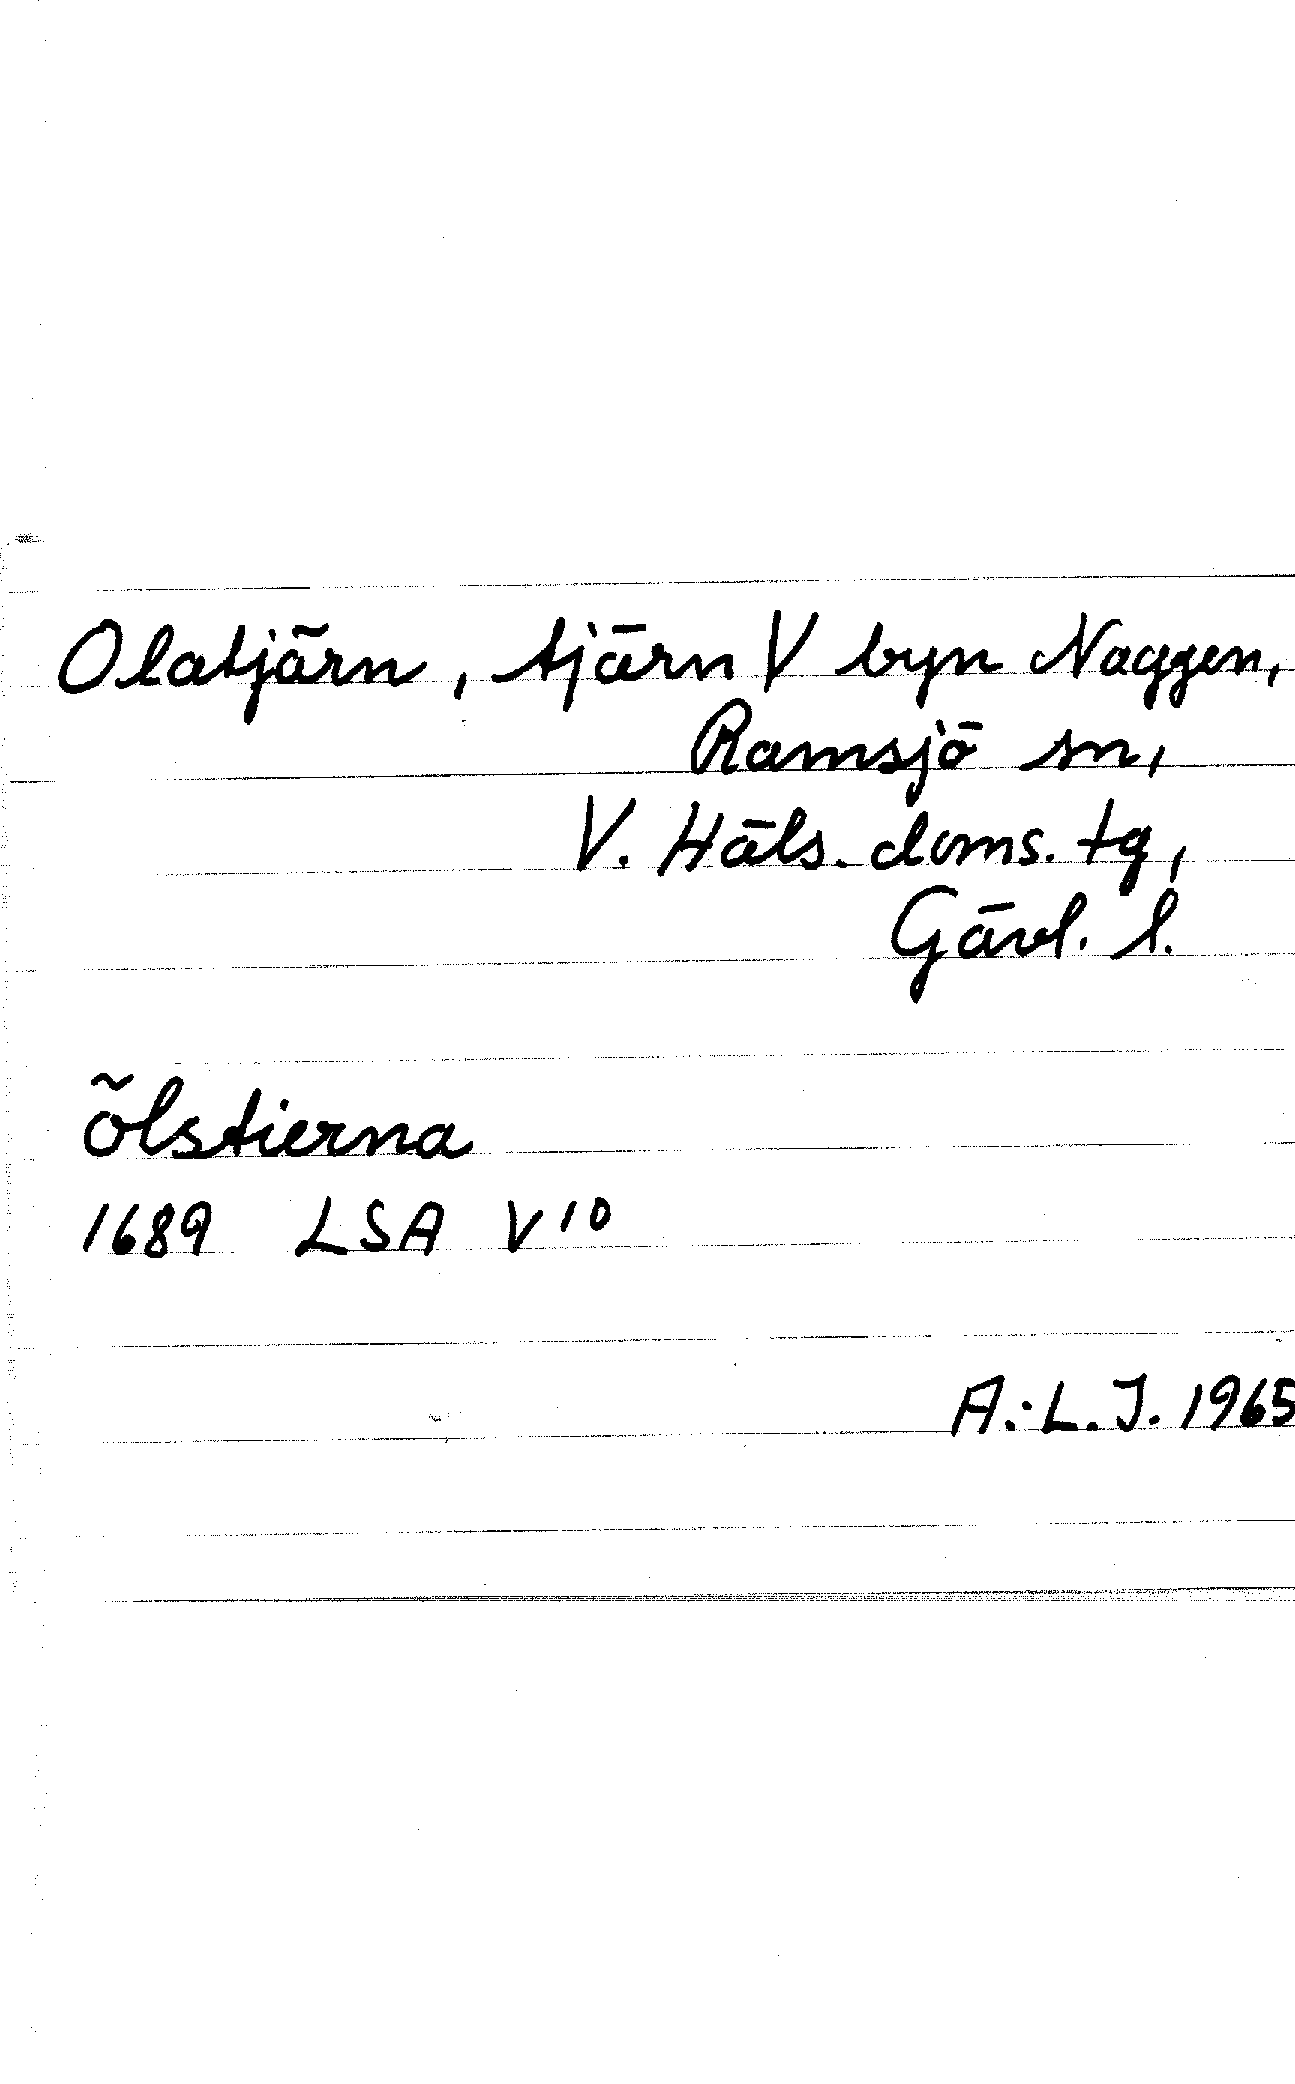 Olatjärn, tjärn V byn Naggen,
Ramsjö sn,
V. Häls. doms. tg,
Gävl. l.
õlstierna
1689 LSA V 10
A.-L. J. 1965